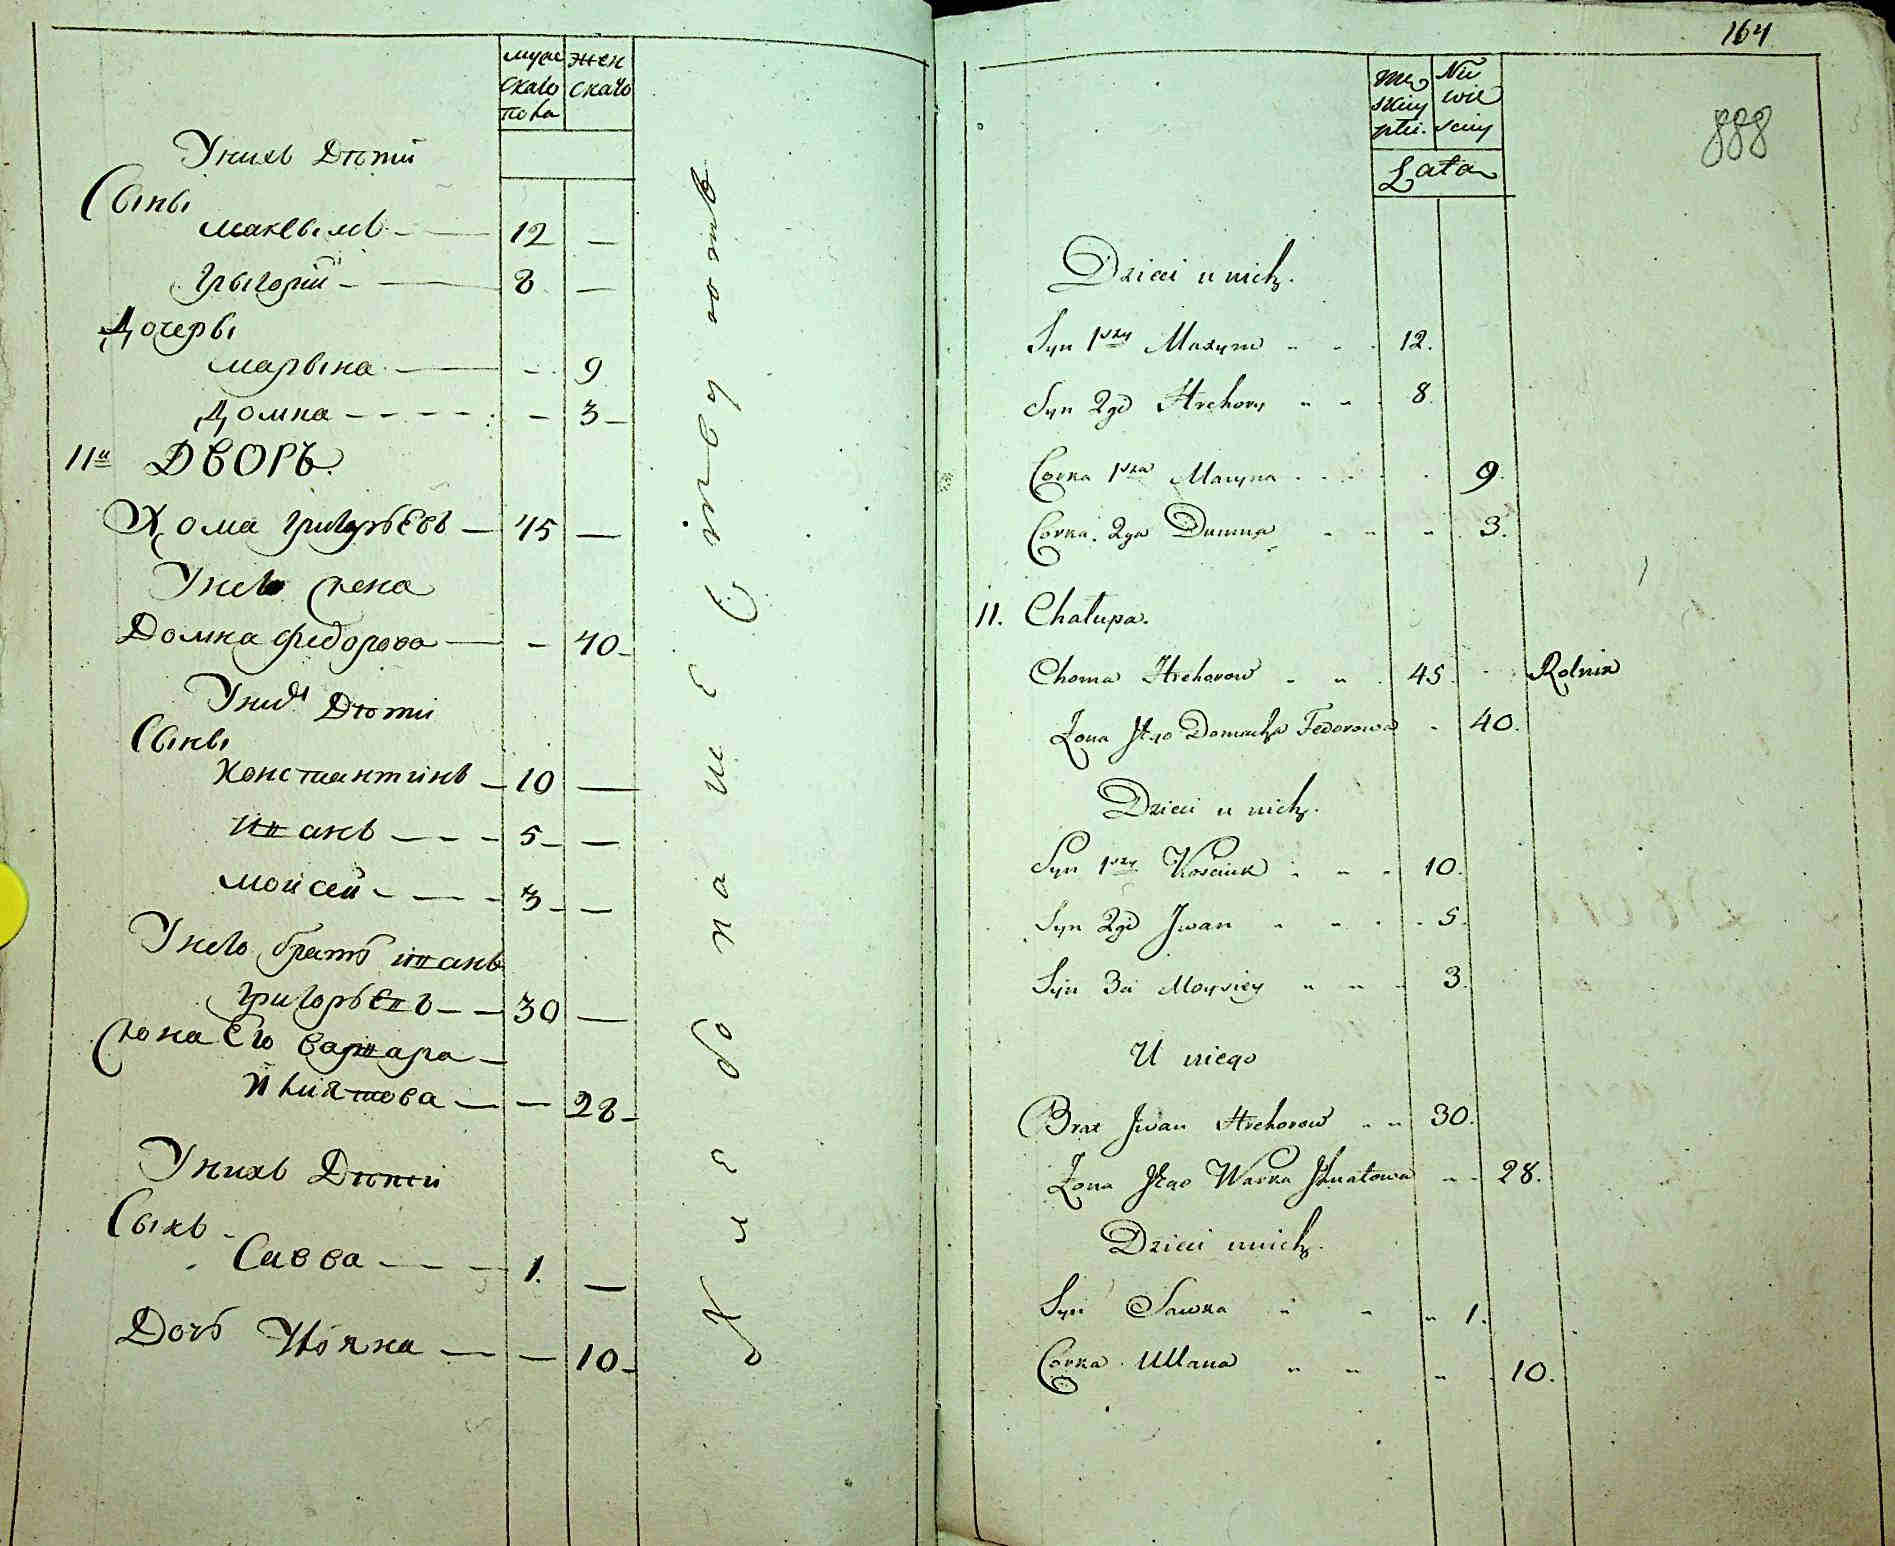 муж жен
скаго скаго
пола
Унихъ Дѣти
Сыны
максымъ 12 —
Грыгорій 8 —
Дочеры
марына — 9
Домна — 3
11й ДВОРЪ.
Хома григорьевъ 45 —
Унего жена
Домна федорова — 40
Унихъ Дѣти
Сыны
Константинъ 10 —
иванъ 5 —
мойсей 3 —
Унего братъ иванъ
григорьевъ 30 —
жона Его варвара
игнатова — 28
Унихъ Дѣти
Сынъ
Савва 1. —
Дочъ Уляна — 10
хлебопашествуютъ
164
888
Męzkiey płci. Niewiesciey
Lata
Dzieci u nich.
Syn 1szy Maxym 12.
Syn 2gi Hrehory 8.
Corka 1sza Maryna 9.
Corka 2ga Dumna 3.
11. Chałupa.
Choma Hrehorow 45. Rolnik
Żona Jego Domacha Fedorowa 40.
Dzieci u nich.
Syn 1szy Kosciuk 10.
Syn 2gi Jwan 5.
Syn 3ci Moysiey 3.
U niego
Brat Jwan Hrehorow 30.
Żona Jego Warka Jhnatowa 28.
Dzieci u nich.
Syn Sawka 1.
Corka Ullana 10.